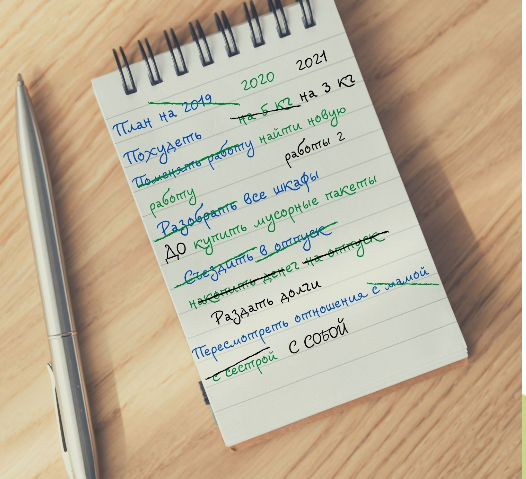 План на 2019 2020 2021
Похудеть на 5 кг на 3 кг
Поменять работу найти новую
работу работы 2
Разобрать все шкафы
До купить мусорные пакеты
Съездить в отпуск
накопить денег на отпуск
Раздать долги
Пересмотреть отношения с мамой
с сестрой С СОБОЙ